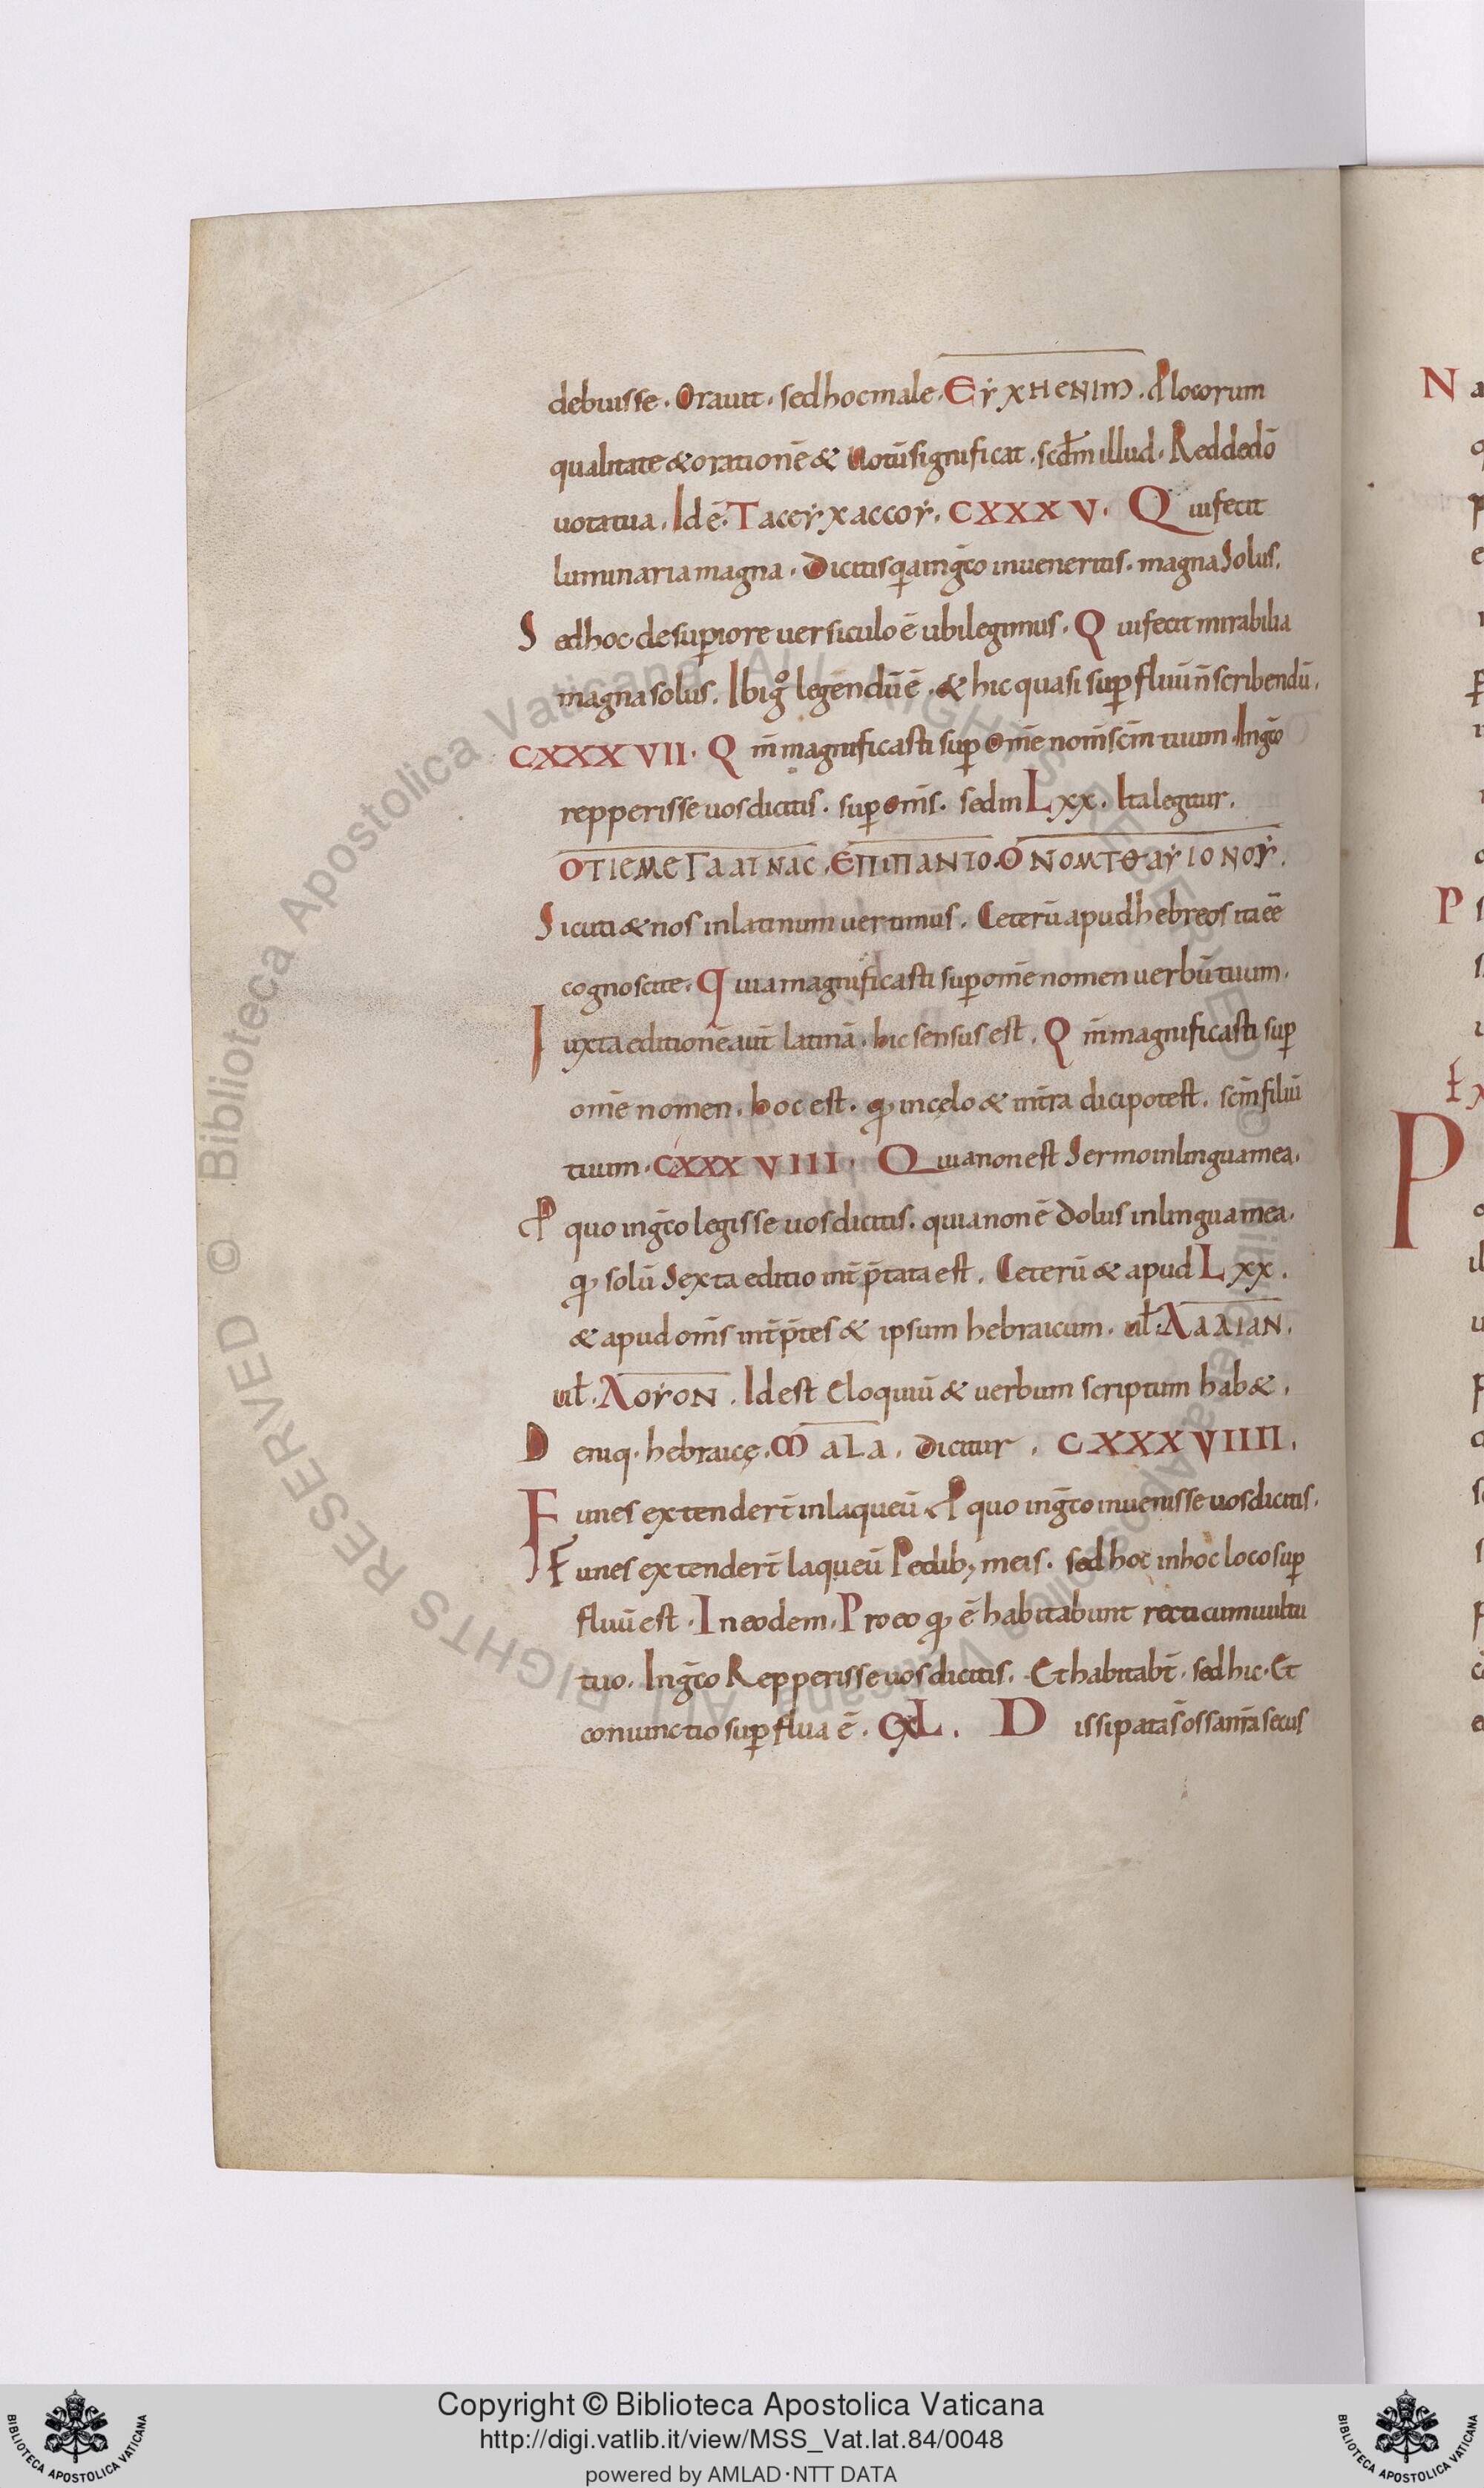 debuisse. Orauit. sed hoc male. ЄΥΧHЄNIM. P locorum
qualitate & orationē & uotū significat. scdm illud. Reddā dō
uota tua. Id ē. Taceẏxaccoẏ. CXXXV. Qui fecit
luminaria magna. Dicitis q̄a in ḡco inueneritis. magna Solus.
Sed hoc de suꝑiore uersiculo ē ubi legimus. Qui fecit mirabilia
magna solus. Ibi gͦ legendū ē. & hic quasi suꝑfluū n̄ scribendū.
CXXXVII. Qm̄ magnificasti suꝑ om̄e nom̄ sc̄m tuum. In gc̄o
repperisse uos dicitis. suꝑ om̄s. sed in Lxx. Ita legitur.
OTIЄMЄΓAΛINAC. ЄΠIΠANTO. ONOMTO AΓIONOY.
Sicuti & nos in latinum uertimus. Ceterū apud hebreos ita ēē
cognoscite. Quia magnificasti suꝑ om̄e nomen uerbū tuum.
Iuxta editionē aut̄ latinā. hic sensus est. Qm̄ magnificasti suꝑ
om̄e nomen. hoc est. qđ in cęlo & int̄ra dici potest. sc̄m filiū
tuum. CXXXVIII. Quia non est Sermo in lingua mea.
P quo in ḡco legisse uos dicitis. quia non ē dolus in lingua mea.
qđ solū Sexta editio int̄p̄tata est. Ceterū & apud Lxx.
& apud om̄s int̄p̄tes & ipsum hebraicum. uł. ΛAΛIAN.
uł. ΛOΓON. Id est Eloquiū & uerbum scriptum hab&.
Deniq. hebraicę. MALA. Dicitur. CXXXVIIII.
Funes extender̄t in laqueū P quo in ḡco inuenisse uos dicitis.
Funes extender̄t laqueū Pedib; meis. sed hoc in hoc loco suꝑ
fluū est. In eodem. Pro eo qđ ē habitabunt recti cum uultu
tuo. In ḡco Repperisse uos dicitis. Et habitabt̄. sed hic. Et
coniunctio suꝑflua ē. CXL. Dissipata s̄ ossa nr̄a secus
Copyright © Biblioteca Apostolica Vaticana
http://digi.vatlib.it/view/MSS_Vat.lat.84/0048
powered by AMLAD·NTT DATA